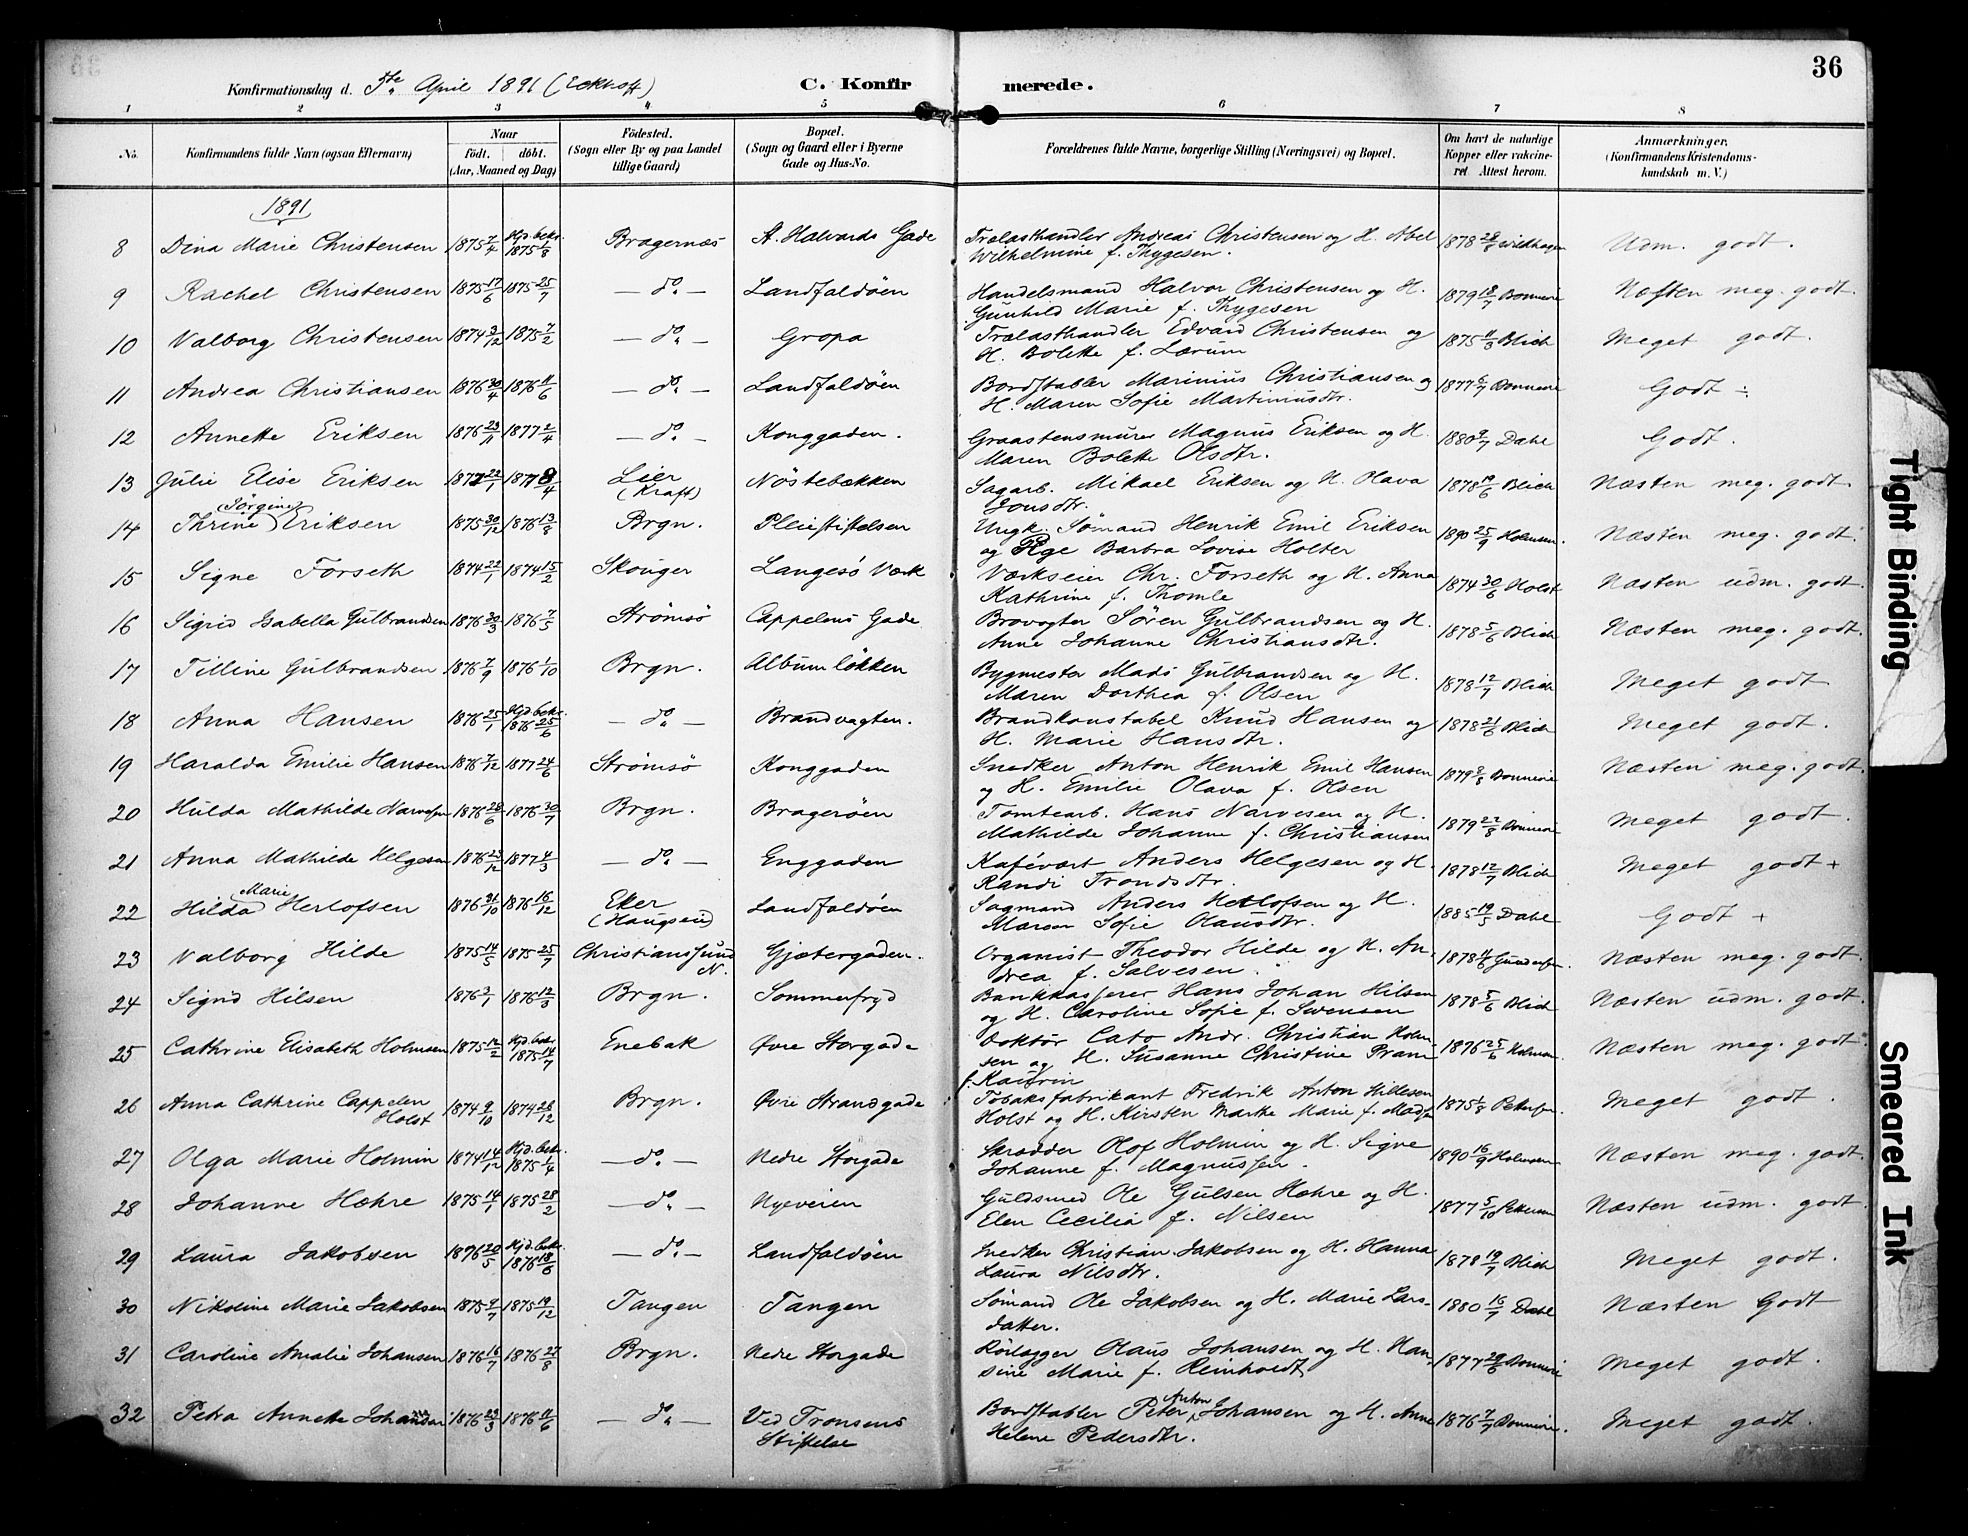 36
Konfirmationsdag d. 5te April 1891 (Eckhoff) C. Konfirmerede.
1 2 3 4 5 6 7 8
No. Konfirmandens fulde Navn (ogsaa Efternavn) Naar Födt. döbt. (Aar, Maaned og Dag) Födested. (Sogn eller By og paa Landet tillige Gaard) Bopæl. (Sogn og Gaard eller i Byerne Gade og Hus-No. Forældrenes fulde Navne, borgerlige Stilling (Næringsvei) og Bopæl. Om havt de naturlige Kopper eller vakcineret. Attest herom. Anmærkninger. (Konfirmandens Kristendomskundskab m. V.)
1891
8 Dina Marie Christensen 1875 7/4 Hjd. bekr. 1875 1/8 Bragernæs St. Halvards Gade Trælasthandler Andreas Christensen og H. Abel Wilhelmine f. Thygesen. 1878 28/6 Wildhagen Udm. godt.
9 Rachel Christensen 1875 17/6 1875 25/7 — do. — Landfaldöen Handelsmand Halvor Christensen og H. Gunhild Marie f. Thygesen 1879 18/7 Bonnevie Næsten meg. godt.
10 Valborg Christensen 1874 3/12 1875 7/2 — do. — Gropa Trælasthandler Edvard Christensen og H. Bolette f. Lærum 1875 11/3 Blich Meget godt.
11 Andrea Christiansen 1876 30/4 1876 11/6 — do. — Landfaldöen Bordstabler Marinius Christiansen og H. Maren Sofie Martinusdtr. 1877 6/7 Bonnevie Godt ÷
12 Annette Eriksen 1876 23/11 1877 2/4 — do — Konggaden. Graastensmurer Magnus Eriksen og H. Maren Bolette Olsdtr. 1880 9/7 Dahl Godt.
13 Julie Elise Eriksen 1877 22/1 1877 8/4 Lier (Kraft) Nöstebækken Sagarb. Mikael Eriksen og H. Olava Jonsdtr. 1878 19/6 Blich Næsten meg. godt.
14 Thrine Jörgine Eriksen 1875 30/12 1876 13/8 Brgn. Pleiestiftelsen Ungk. Sömand Henrik Emil Eriksen og Pige Barbra Lovise Holter 1890 25/9 Holmsen. Næsten meg. godt.
15 Signe Forseth 1874 22/1 1874 15/2 Skouger Langesö Værk Værkseier Chr. Forseth og H. Anna Kathrine f. Thomle 1874 30/6 Holst Næsten udm. godt.
16 Sigrid Isabella Gulbrandsen 1876 20/3 1876 7/5 Strömsö Cappelens Gade Brovogter Sören Gulbrandsen og H. Anne Johanne Christiansdtr. 1878 5/6 Blich Næsten meg. godt.
17 Tilline Gulbrandsen 1876 7/9 1876 1/10 Brgn. Albumlökken Bygmester Mads Gulbrandsen og H. Maren Dorthea f. Olsen 1878 12/7 Blich Meget godt
18 Anna Hansen 1876 25/1 Hjd. bekr. 1876 25/6 — do — Brandvagten. Brandkonstabel Knud Hansen og H. Marie Hansdtr. 1878 21/6 Blich Meget godt.
19 Haralda Emilie Hansen 1876 7/12 1877 24/6 Strömsö Konggaden Snedker Anton Henrik Emil Hansen og H. Emilie Olava f. Olsen 1879 9/8 Bonnevie Næsten meg. godt.
20 Hulda Mathilde Narvesen 1876 28/6 1876 30/7 Brgn. Bragerøen Tomtearb. Hans Narvesen og H. Mathilde Johanne f. Christiansen 1879 22/8 Bonnevie Meget godt.
21 Anna Mathilde Helgesen 1876 23/12 1877 4/3 — do. — Enggaden Kafévært Anders Helgesen og H. Randi Trondsdtr. 1878 12/7 Blich Meget godt +
22 Hilda Marie Herlofsen 1876 31/10 1876 16/12 Eker (Haugsund) Landfaldöen Sagmand Anders Herlofsen og H. Maren Sofie Olausdtr. 1885 19/5 Dahl Godt +
23 Valborg Hilde 1875 14/5 1875 25/7 Christianssund N. Gjætergaden. Organist Theodor Hilde og H. Andrea f. Salvesen. 1878 11/6 Gundersen. Næsten meg. godt.
24 Sigrid Hilsen 1876 3/1 1876 12/3 Brgn. Sommerfryd Bankkasserer Hans Johan Hilsen og H. Caroline Sofie f. Svensen 1878 5/6 Blich Næsten udm. godt.
25 Cathrine Elisabeth Holmsen 1875 12/2 Hjd. bekr. 1875 14/7 Enebak Øvre Storgade Doktor Cato Andr. Christian Holmsen og H. Susanne Christine Pram f. Kaurin 1876 25/6 Holmsen Næsten meg. godt.
26 Anna Cathrine Cappelen Holst 1874 9/10 1874 28/12 Brgn. Øvre Strandgade Tobaksfabrikant Fredrik Anton Hillesen Holst og H. Kirsten Marthe Marie f. Madsen 1875 1/8 Petersen Meget godt.
27 Olga Marie Holmin 1874 14/12 Hjd. bekr. 1875 1/4 — do. — Nedre Storgade Skrædder Olof Holmin og H. Signe Johanne f. Magnussen. 1890 16/9 Holmsen Næsten meg. godt.
28 Johanne Hæhre 1875 14/1 1875 28/2 — do. — Nyeveien Guldsmed Ole Gulsen Hæhre og H. Elen Cecilia f. Nilsen 1877 5/10 Petersen Næsten udm. godt
29 Laura Jakobsen 1876 20/5 Hjd. bekr. 1876 18/6 — do. — Landfaldöen Snedker Christian Jakobsen og H. Hanna Laura Nilsdtr. 1878 19/7 Blich Meget godt.
30 Nikoline Marie Jakobsen 1875 9/7 1875 19/12 Tangen Tangen Sömand Ole Jakobsen og H. Marie Larsdatter. 1880 16/7 Dahl Næsten Godt
31 Caroline Amalie Johansen 1876 16/7 1876 27/8 Brgn. Nedre Storgade Rörlægger Olaus Johansen og H. Hansine Marie f. Reinholdt 1877 29/6 Bonnevie Meget godt.
32 Petra Annette Johansen 1876 23/3 1876 11/6 — do. — Ved Tronsens Stiftelse Bordstabler Peter Anton Johansen og H. Anne Helene Pedersdtr. 1876 7/7 Bonnevie. Meget godt.
Tight Binding
Smeared Ink